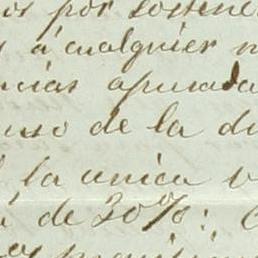 por sostene
á cualquier
ncias apurada
uso de la di
la unica v
á de 30%: